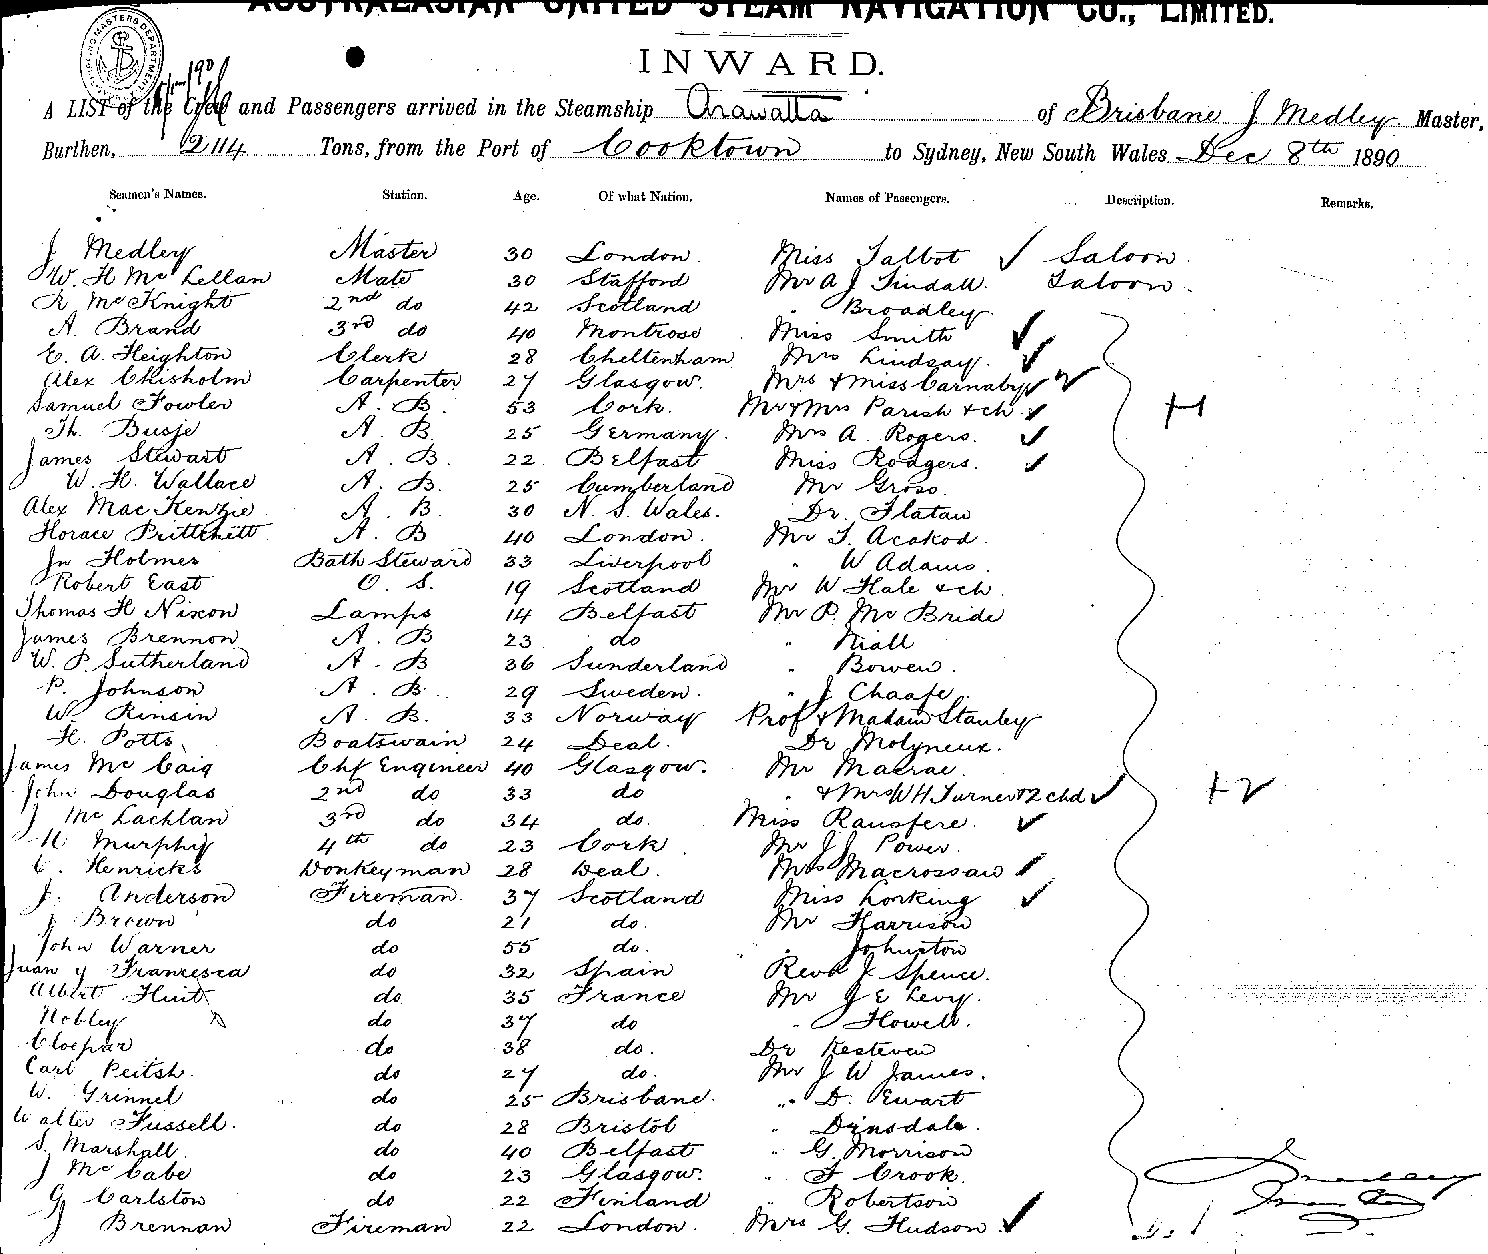 AUSTRALASIAN UNITED STEAM NAVIGATION CO., LIMITED.
INWARD.
A LIST of the Crew and Passengers arrived in the Steamship Arawatta of Brisbane J Medley Master,
Burthen, 2114 Tons, from the Port of Cooktown to Sydney, New South Wales Dec 8th 1890
Seamen's Names. Station. Age. Of what Nation. Names of Passengers. Description. Remarks.
J Medley Master 30 London. Miss Talbot ✓ Saloon.
W. H Mc Lellan Mate 30 Stafford Mr A J Tindall. Saloon.
R McKnight 2nd do 42 Scotland " Broadley.
A. Brand 3rd do 40 Montrose Miss Smith ✓
E. A. Heighton Clerk 28 Cheltenham Mrs Lindsay. ✓
Alex Chisholm Carpenter 27 Glasgow. Mrs & Miss Carnaby ✓
Samuel Fowler A. B. 53 Cork. Mr & Mrs Parish & ch ✓
Th. Busje A. B. 25 Germany. Mrs A. Rogers. ✓
James Stewart A. B. 22 Belfast Miss Rodgers. ✓
W. H. Wallace A. B. 25 Cumberland Mr Gross.
Alex MacKenzie A. B. 30 N. S. Wales. Dr. Flatau
Horace Prittchitt A. B 40 London. Mr T. Acakod.
Jn Holmes Bath Steward 33 Liverpool " W Adams.
Robert East O. S. 19 Scotland Mr W Hale & ch.
Thomas H Nixon Lamps 14 Belfast Mr P. Mc Bride
James Brennon A. B 23 do " Niall
W. P. Sutherland A. B 36 Sunderland " Bowen.
P. Johnson A. B. 29 Sweden. " J Chaafe.
W. Rinsin A. B. 33 Norway Prof & Madam Stanley
H. Potts Boatswain 24 Deal. Dr Molyneux.
James Mc Caig Chf Engineer 40 Glasgow. Mr Macrae.
John Douglas 2nd do 33 do " & Mrs W H Turner & 2 chd ✓
J Mc Lachlan 3rd do 34 do. Miss Ransfere. ✓
N Murphy 4th do 23 Cork. Mr J J Power.
C. Henricks Donkeyman 28 Deal. Mrs Macrossan ✓
J. Anderson Fireman. 37 Scotland Miss Lorking ✓
J Brown do 21 do. Mr Harrison
John Warner do 55 do. " Johnston
Juan y Francesca do 32 Spain Revd J Spence.
Albert Huit do 35 France Mr J E Levy.
Nobley do 37 do " Howell.
Cloepar do 38 do. Dr Kesteven
Carl Peitsh. do 27 do. Mr J W James.
W. Grinnel do 25 Brisbane. " D. Ewart
Walter Fussell. do 28 Bristol " Dinsdale.
S. Marshall. do 40 Belfast " G. Morrison
J McCabe do 23 Glasgow. " F Crook.
G Carlston do 22 Finland " Robertson
J Brennan Fireman 22 London. Mrs G. Hudson ✓